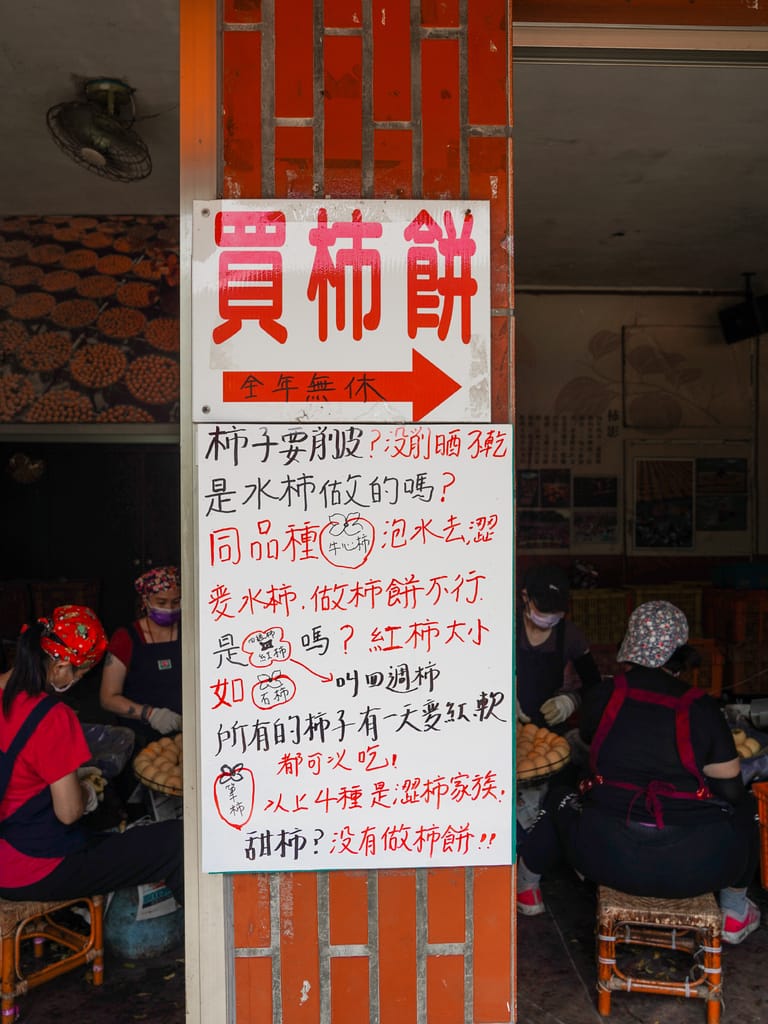 買柿餅
全年無休
柿子要削皮?沒削晒不乾
是水柿做的嗎?
同品種牛心柿泡水去澀
変水柿.做柿餅不行.
是紅柿嗎?紅柿大小
如石柿叫四週柿
所有的柿子有一天变紅軟
都可以吃!
筆柿
以上4種是澀柿家族.
甜柿?没有做柿餅!!